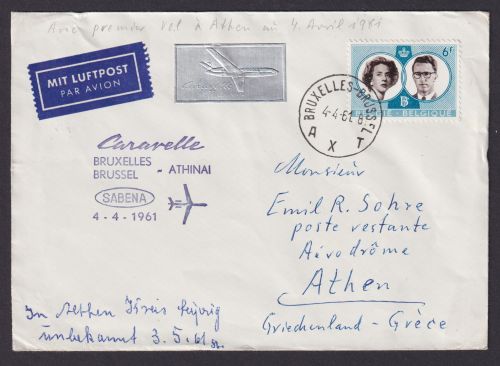 Avec premier Vol à Athen au 4. Avril 1961
MIT LUFTPOST
PAR AVION
Caravelle
6F
BELGIË - BELGIQUE
BRUXELLES-BRUSSEL
4-4-61
A X T
Caravelle
BRUXELLES
BRUSSEL - ATHINAI
SABENA
4-4-1961
Monsieur
Emil R. Sohre
poste restante
Aérodrôme
Athen
Griechenland - Grèce
In Aethen Kreis
unbekannt 3.5.61